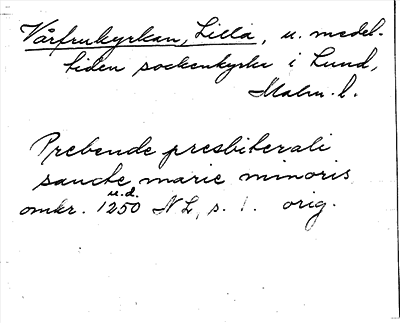 Vårfrukyrkan, Lilla, u. medel-
tiden sockenkyrka i Lund,
Malm. l.
Prebende presbiterali
sancte marie minoris
u.d.
omkr. 1250 NL, s. 1. orig.